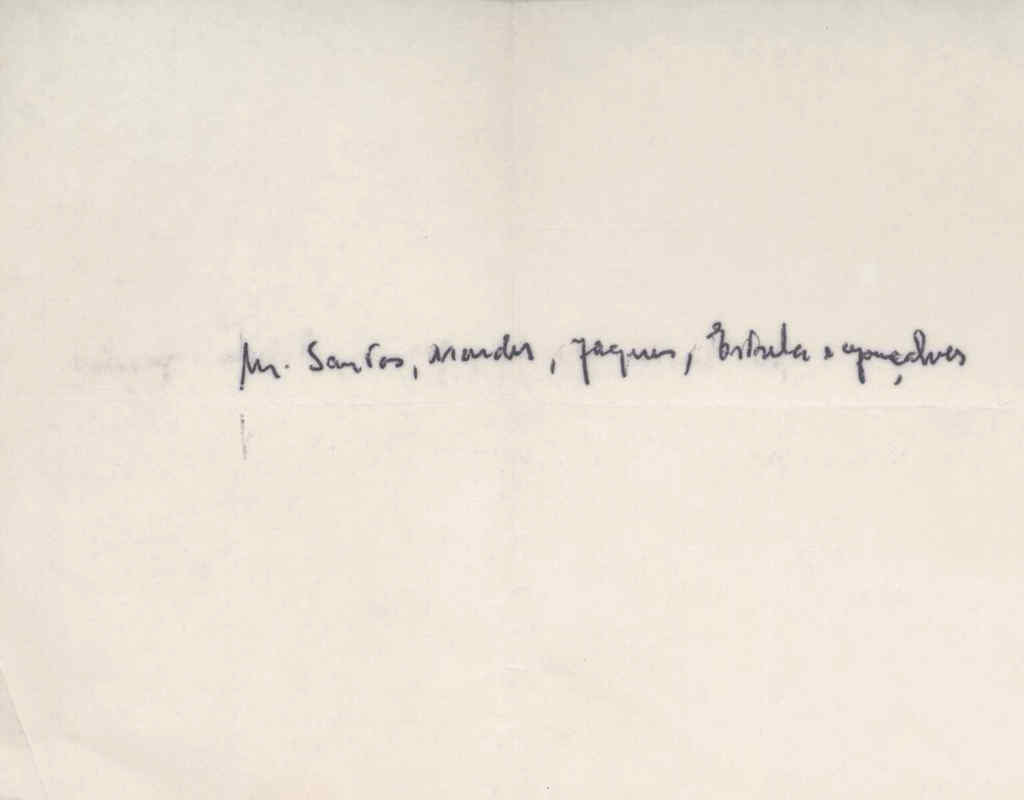 M. Santos, Mendes, Jaques, Estrela e Gonçalves